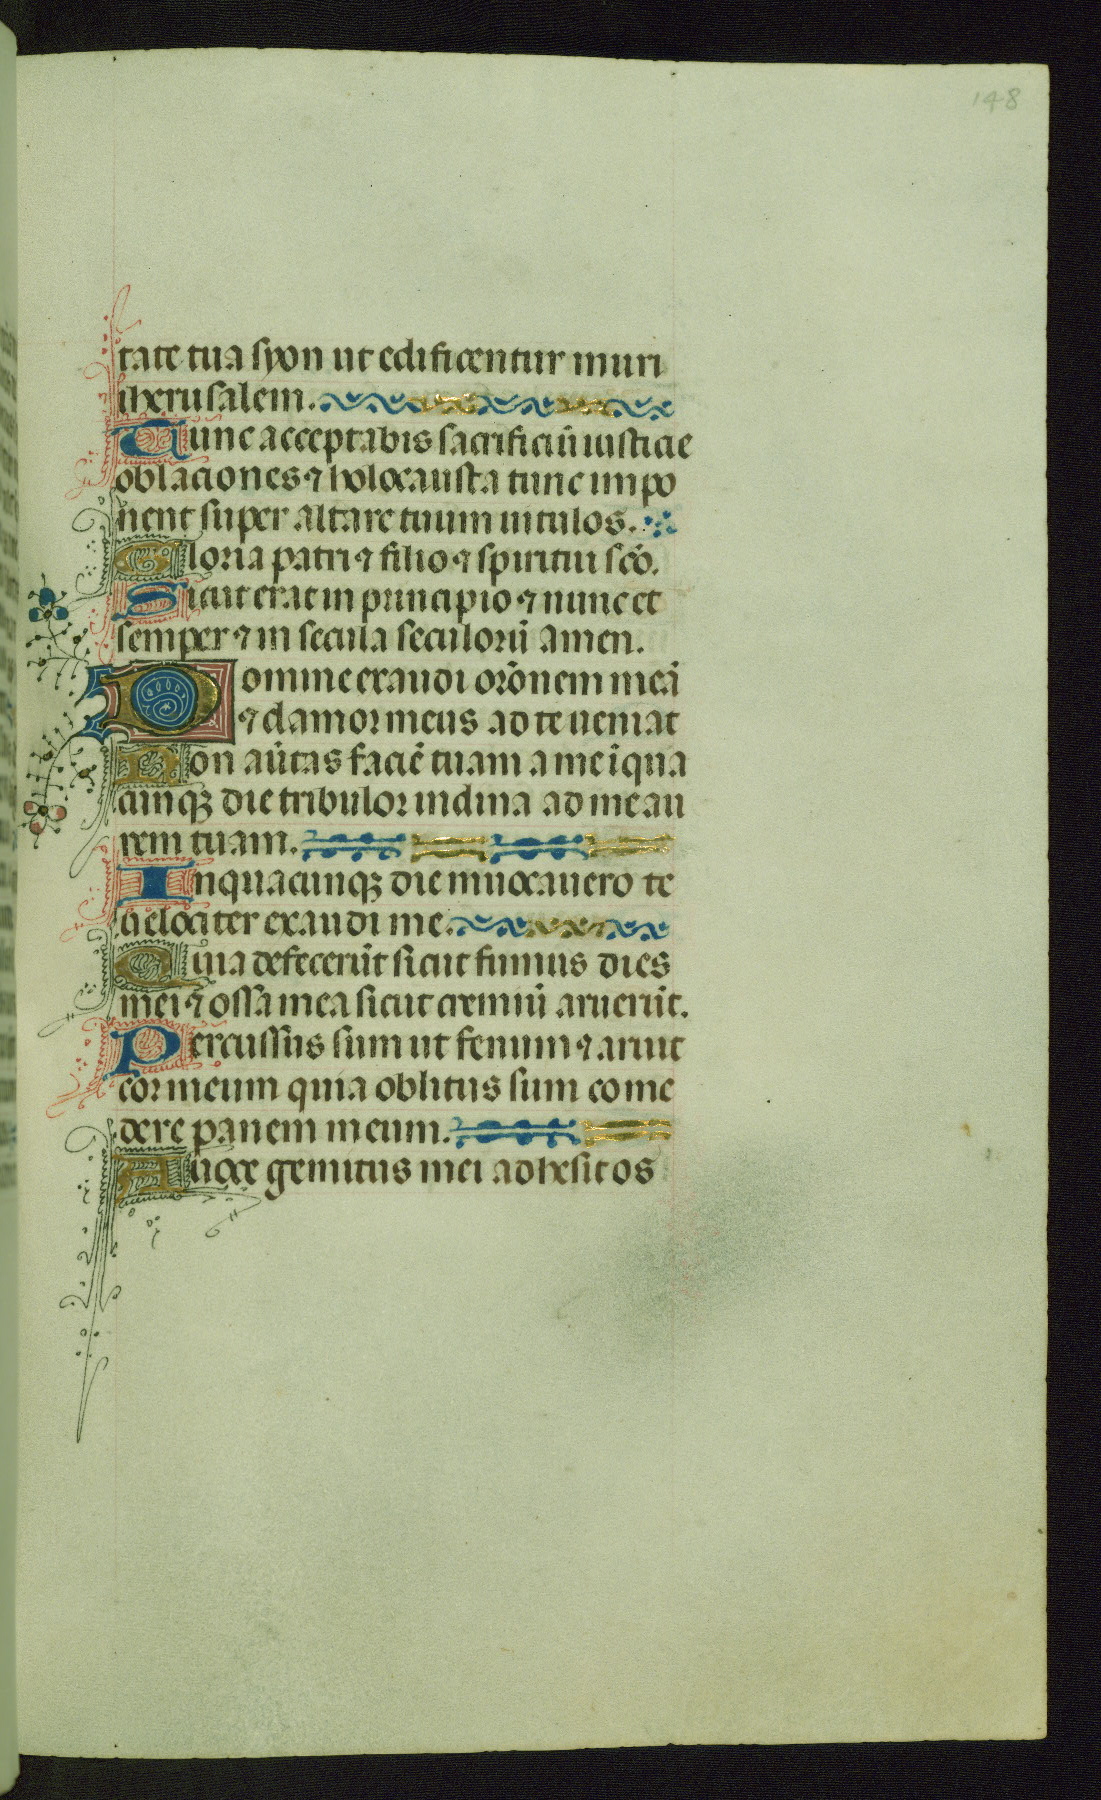 148
tate tua syon ut edificentur muri
iherusalem.
Tunc acceptabis sacrificiū iusticie
oblaciones ⁊ holocausta tunc impo
nent super altare tuum uitulos.
Gloria patri ⁊ filio ⁊ spiritui sc̄o.
Sicut erat in principio ⁊ nunc et
semper ⁊ in secula seculorū amen.
Domine exaudi or̄onem meā
⁊ clamor meus ad te ueniat
Non au̅tas faciē tuam a me ī qua
cunqꝫ die tribulor inclina ad me au
rem tuam.
In quacunqꝫ die inuocauero te
uelociter exaudi me.
Quia defecerūt sicut fumus dies
mei ⁊ ossa mea sicut cremiū aruerūt.
Percussus sum ut fenum ⁊ aruit
cor meum quia oblitus sum come
dere panem meum.
A uoce gemitus mei adhesit os